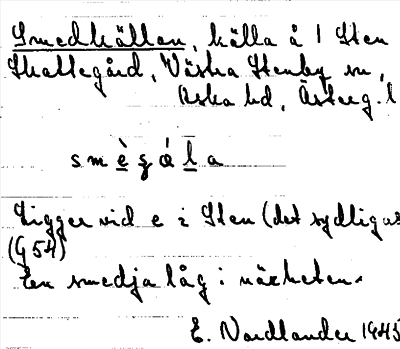 Smedkällan, källa å 1 Sten
Skattegård, Västra Stenby sn,
Aska hd, Österg. l
s m è g á l a
Ligger vid e i Sten (det sydligas
(G 54)
En smedja låg i närheten.
E. Nordlander 1945